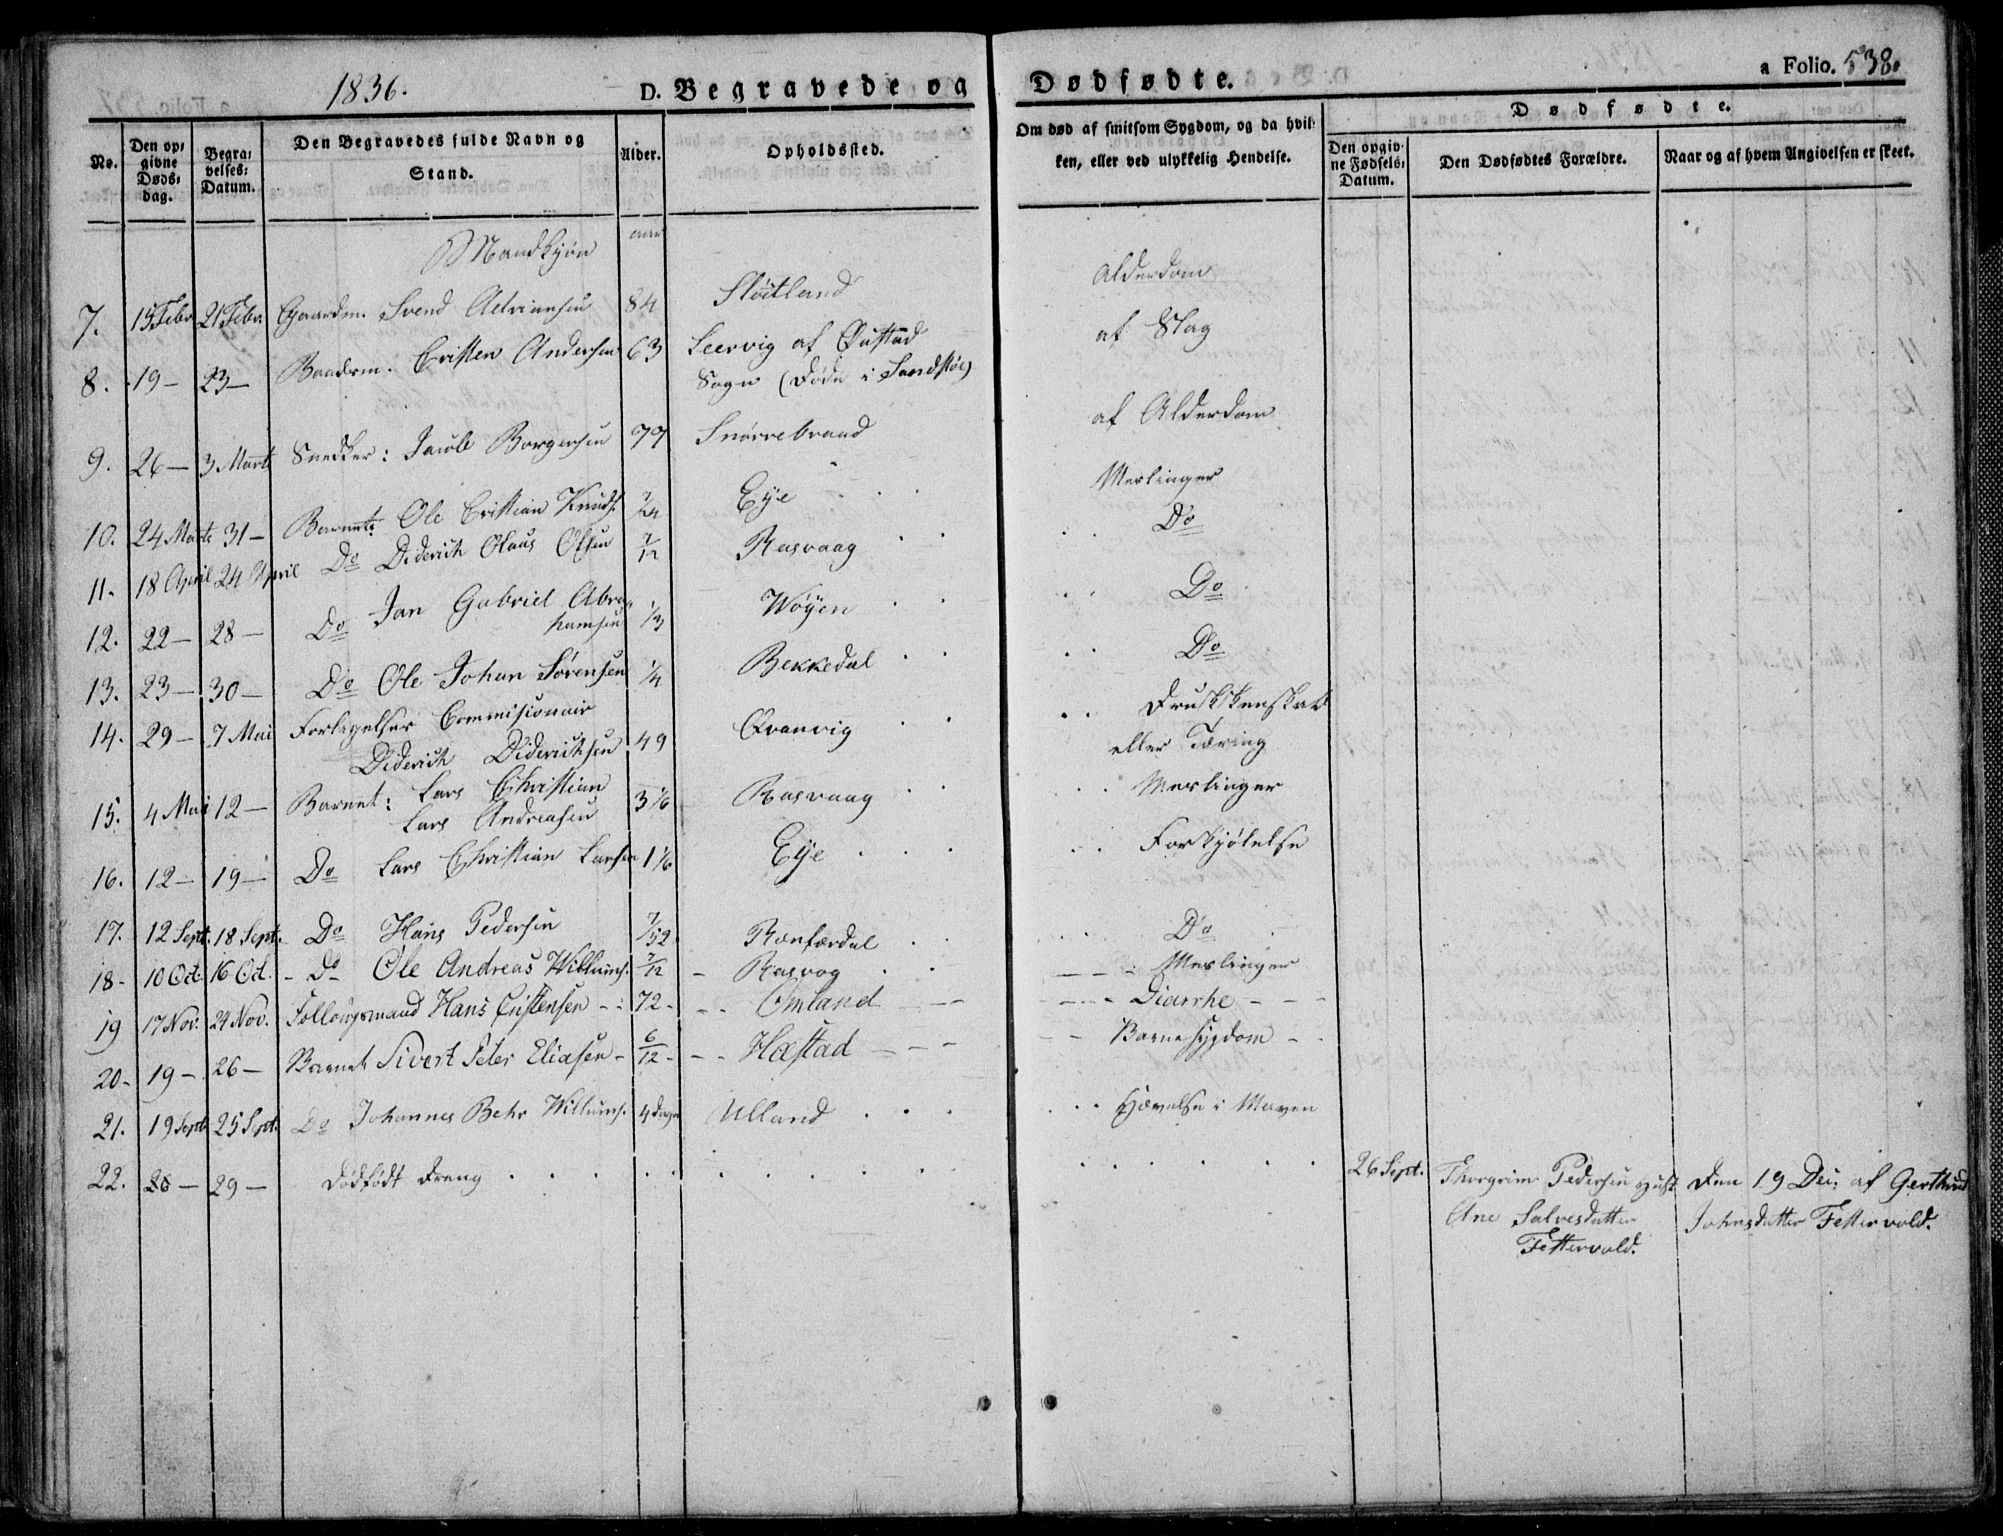 1836.
D. Begravede og Dødfødte.
a Folio. 538.
No.
Den opgivne Døds-dag.
Begravelses-Datum.
Den Begravedes fulde Navn og Stand.
Alder.
Opholdssted.
Om død af smitsom Sygdom, og da hvilken, eller ved ulykkelig Hendelse.
Dødfødte.
Den opgivne Fødsels-Datum.
Den Dødfødtes Forældre.
Naar og af hvem Angivelsen er skeet.
Mandkjøn aar
7. 15 Febr 21 Febr. Gaardm. Svend Adriansen 84 Sløitland Alderdom
8. 19 — 23 — Baadsm. Cristen Andersen 63 Leervig af Øiestad af Slag
Sogn (døde i Sandstøe)
9. 26 — 3 Marts Snedker: Jacob Borgersen 77 Snørrebraad af Alderdom
10. 24 Marts 31 — Barnet: Ole Cristian Knuds. Eye Meslinger
11. 18 April 24 April Do Diderich Olaus Olsen 7/12 Rasvaag Do
12. 22 — 28 — Do Jan Gabriel Abra-
hamsen 1/3 Wøyen Do
13. 23 — 30 — Do Ole Johan Sørensen 1/4 Bekkedal Do
14. 29 — 7 Mai Forligelses Commisionair
Diderich Diderichsen 49 Qvanvig Drukkenskab
eller Tæring
15. 4 Mai 12 — Barnet: Lars Christian
Lars Andreasen 3 1/6 Rasvaag Meslinger
16. 12 — 19 — Do Lars Christian Larsen 1 1/6 Eye Forkjølelse
17. 12 Sept. 18 Sept. Do Hans Pedersen 7/52 Rænfærdal Do
18 - 10 Oct. 16 Oct. - Do Ole Andreas Willums. 7/12 - Rasvog Meslinger
19 17 Nov. 24 Nov. Follougsmand Hans Cristensen 72 - Omland Diarrhe
20 - 19 — 26 — Barnet Sivert Peter Eliasen - 6/12 - Hæstad Barnesygdom
21. 19 Sept. 25 Sept. Do Johannes Behr Willums. 4 dage Ulland Hævelse i Maven
22. 26 — 29 — dødfødt Dreng 26 Sept. Thorgrim Pedersen Hust. Den 19 Dec: af Gerthrud
Ane Salvesdatter Johnsdatter Fettervold.
Fettervold.